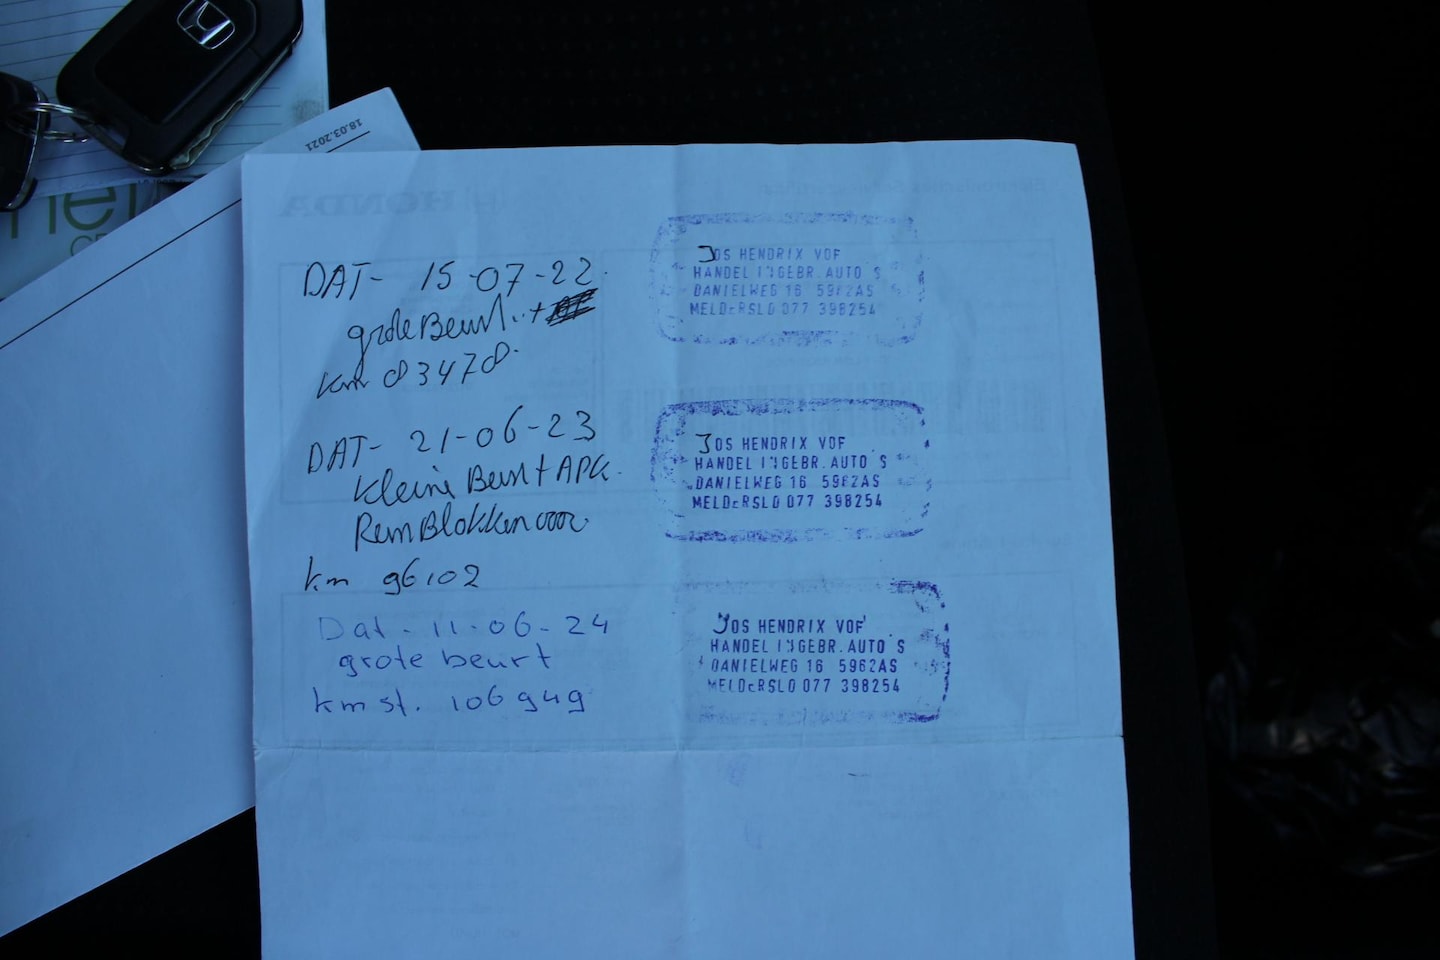 18.03.2021
HONDA
DAT- 15-07-22
grote Beurt.. +
km 83478
DAT- 21-06-23
Kleine Beurt + APK
RemBlokken voor
km 96102
Dat - 11-06-24
grote beurt
km st. 106949
JOS HENDRIX VOF
HANDEL IN GEBR. AUTO S
DANIELWEG 16 5962AS
MELDERSLO 077 398254
JOS HENDRIX VOF
HANDEL IN GEBR. AUTO S
DANIELWEG 16 5962AS
MELDERSLO 077 398254
JOS HENDRIX VOF
HANDEL IN GEBR. AUTO S
DANIELWEG 16 5962AS
MELDERSLO 077 398254